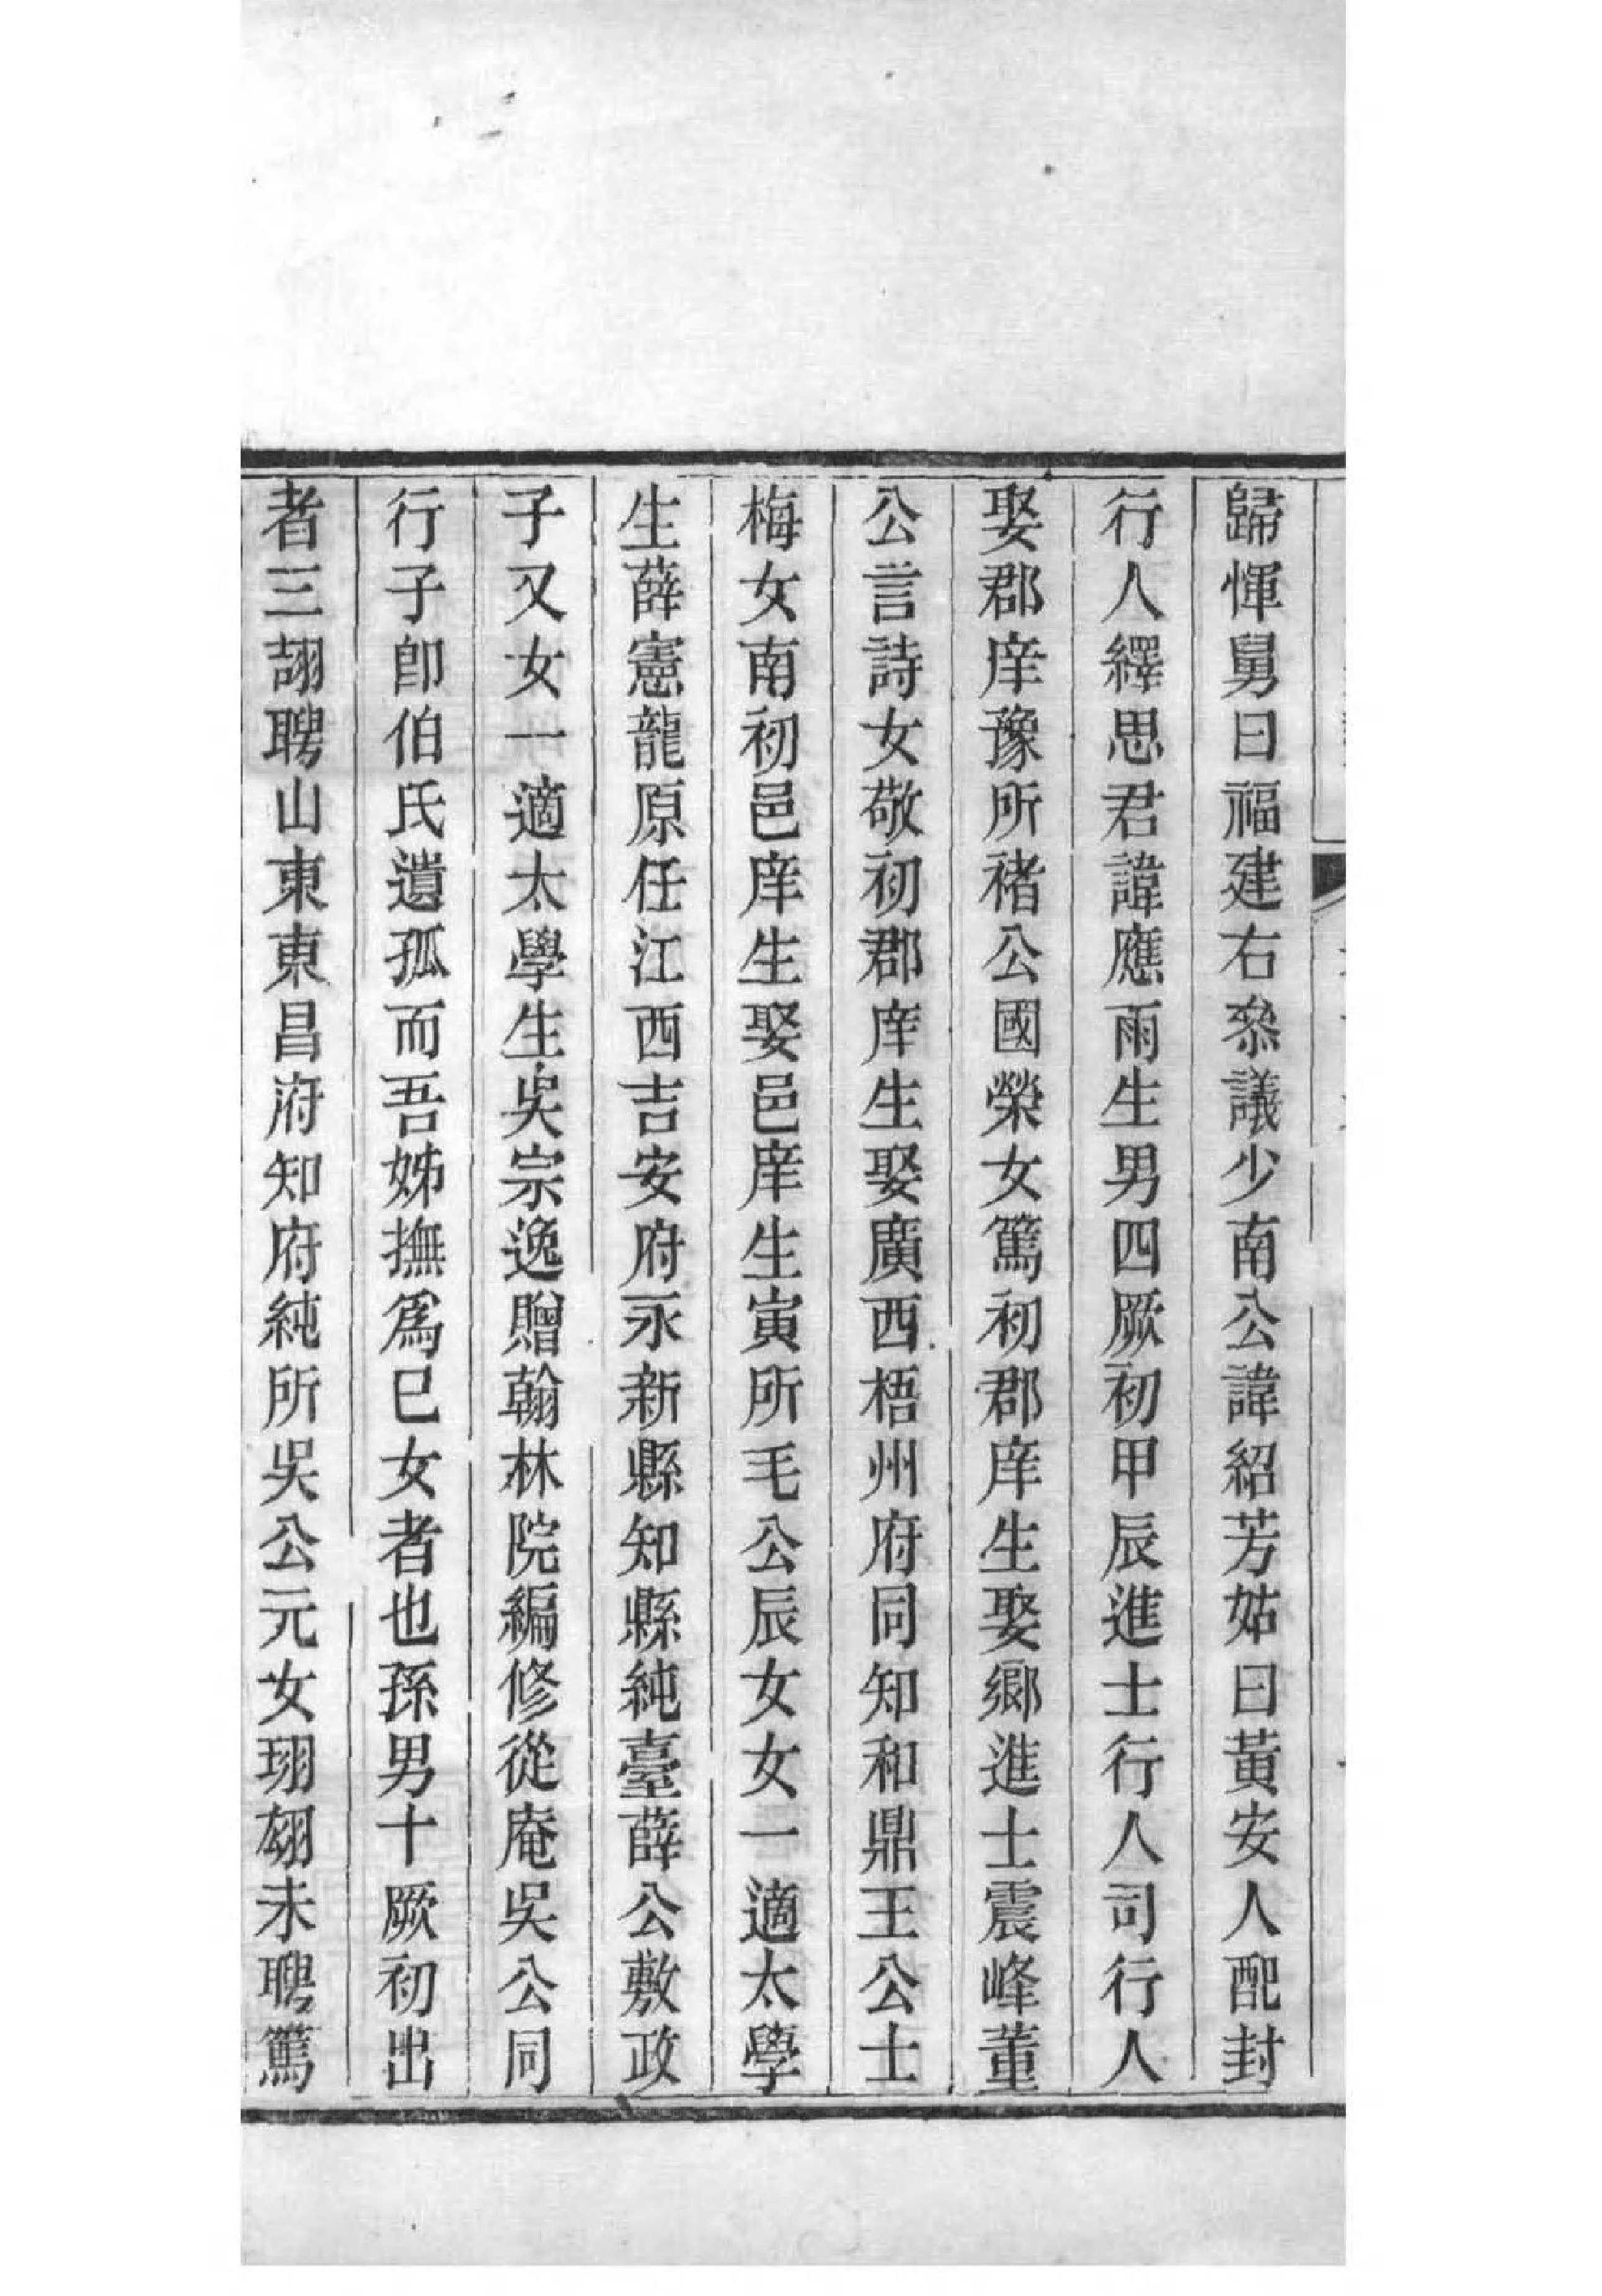 歸惲舅曰福建右叅議少南公諱紹芳姑曰黃安人配封
行人繹思君諱應雨生男四厥初甲辰進士行人司行人
娶郡庠豫所褚公國榮女篤初郡庠生娶鄉進士震峰董
公言詩女敬初郡庠生娶廣西梧州府同知和鼎王公士
梅女南初邑庠生娶邑庠生寅所毛公辰女女一適太學
生薛憲龍原任江西吉安府永新縣知縣純臺薛公敷政
子又女一適太學生吳宗逸贈翰林院編修從庵吳公同
行子卽伯氏遺孤而吾姊撫爲巳女者也孫男十厥初出
者三詡聘山東東昌府知府純所吳公元女珝翃未聘篤